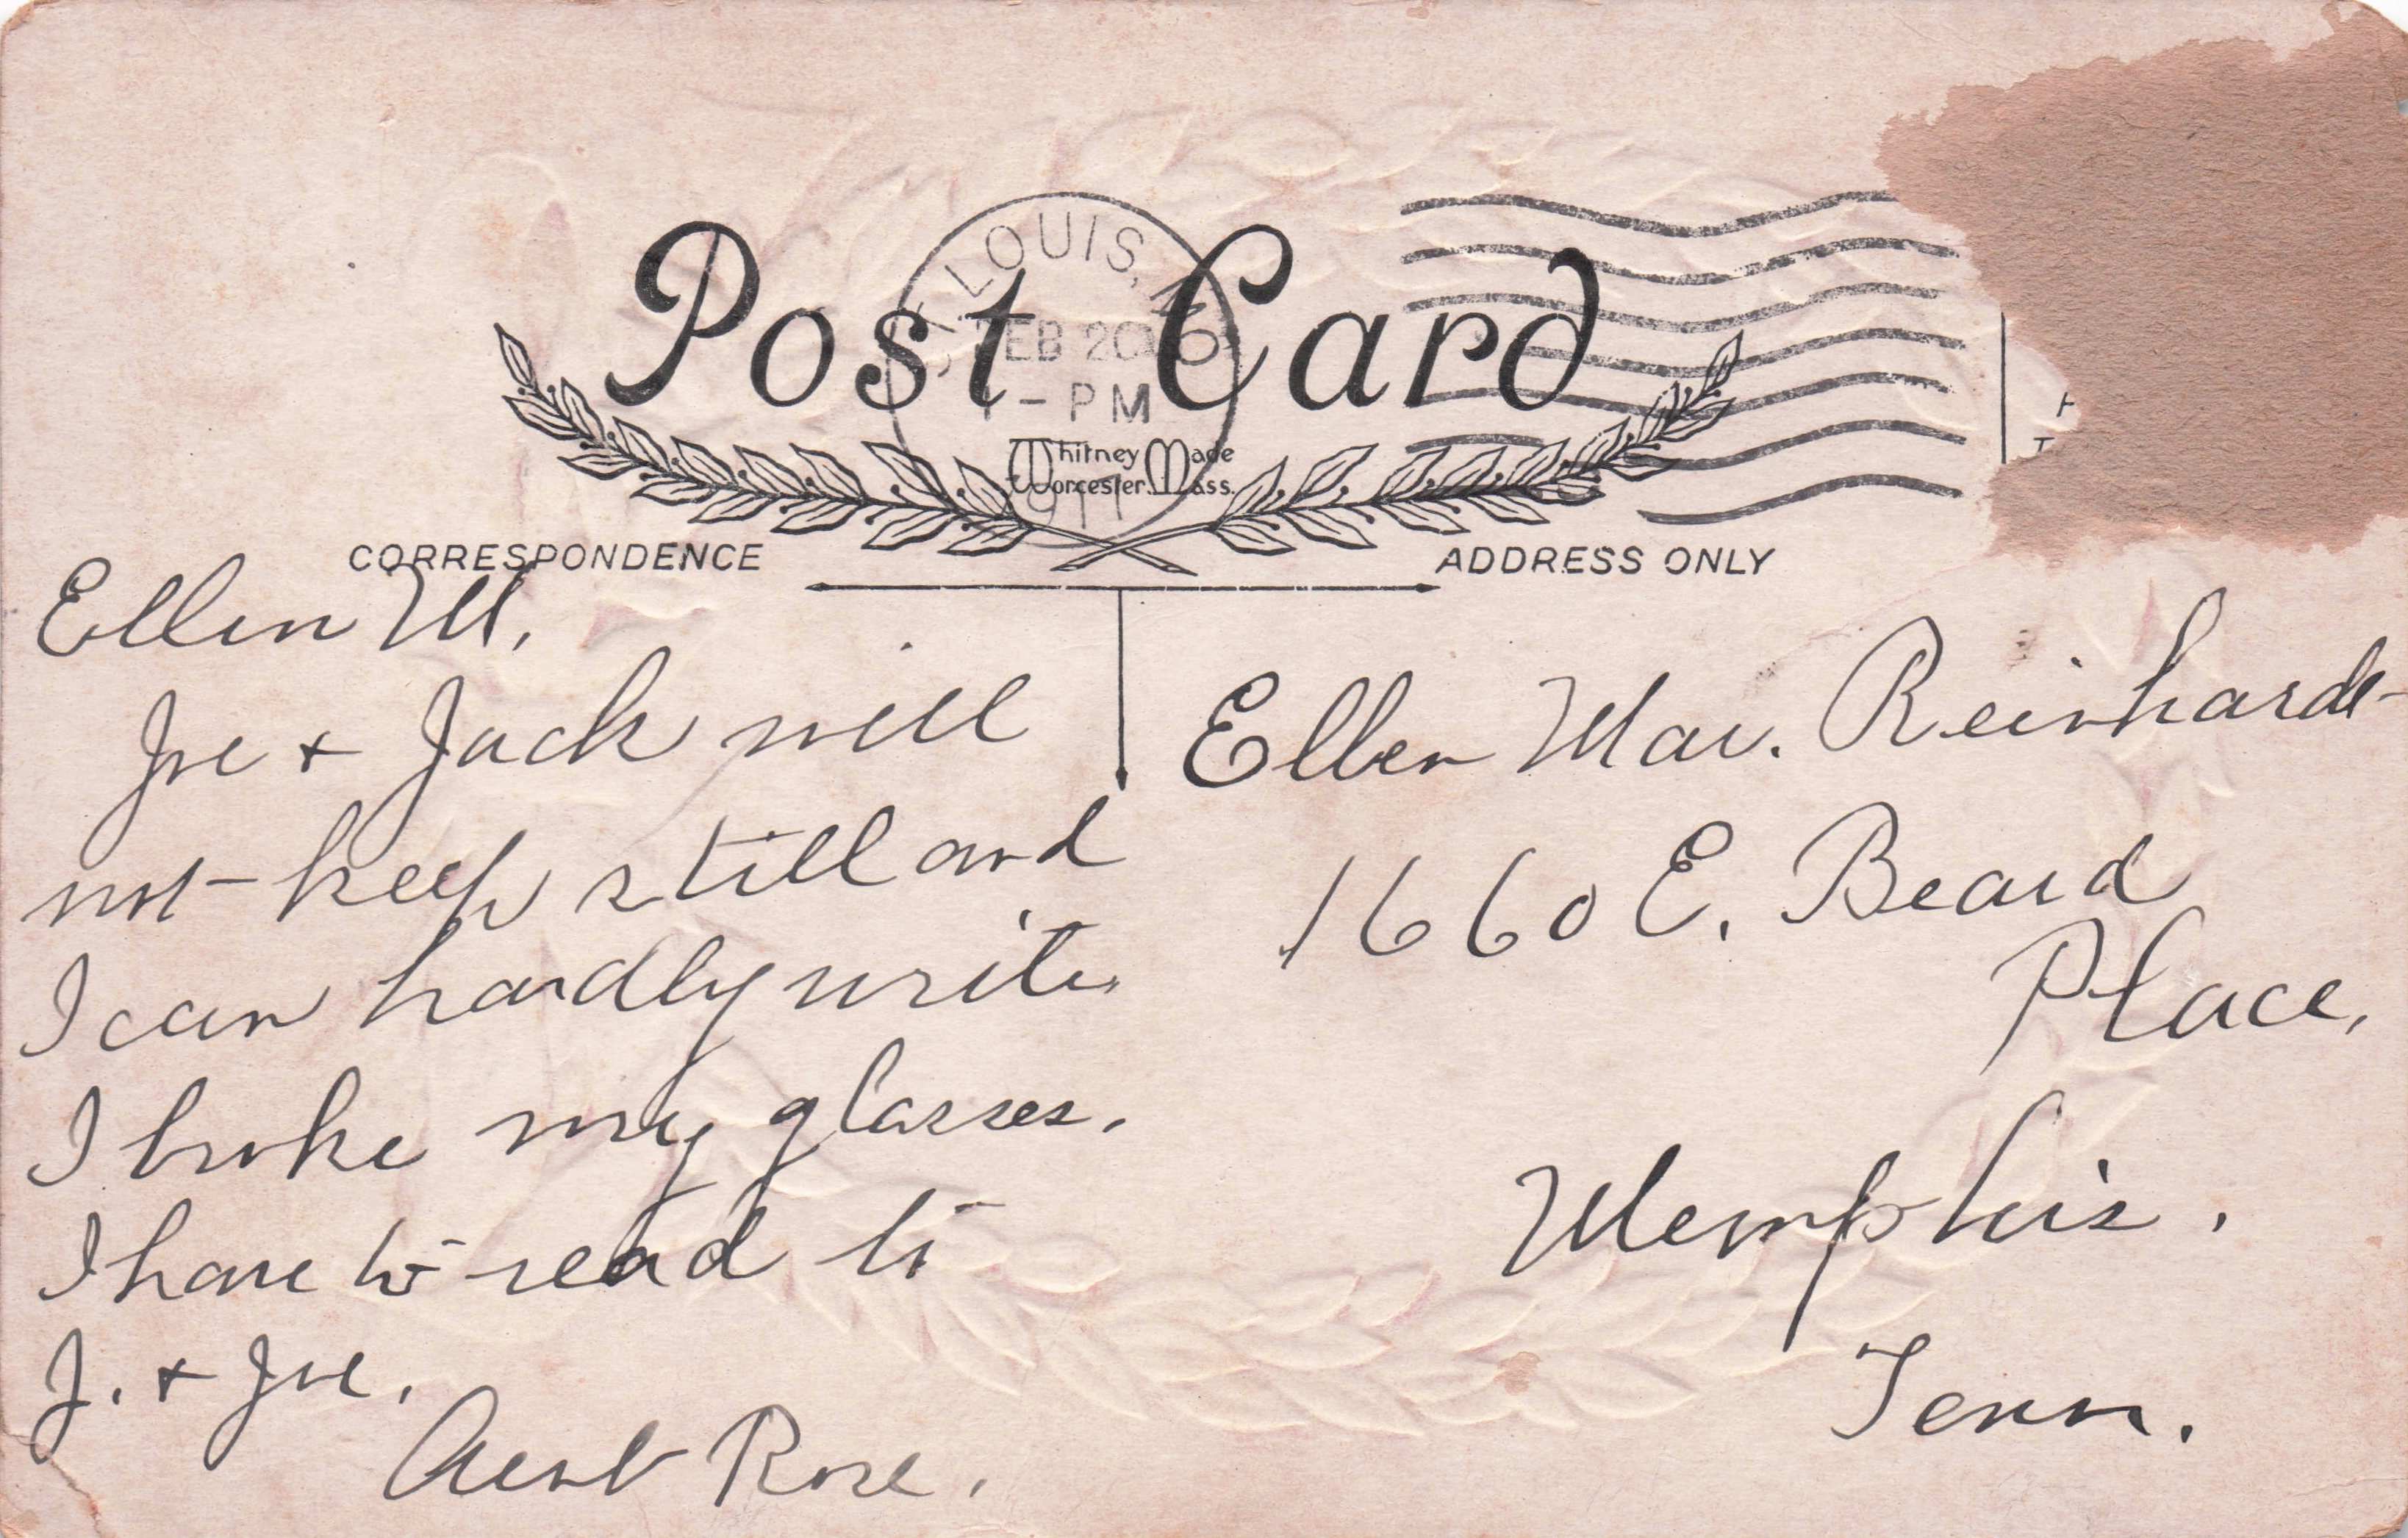 Post Card
ST. LOUIS, M
FEB 20
1 - PM
1911
Whitney Made
Worcester, Mass.
CORRESPONDENCE
ADDRESS ONLY
Ellen M,
Joe + Jack will
not keep still and
I can hardly write.
I broke my glasses.
I have to read to
J. + Joe.
Aunt Rose.
Ellen Mae. Reinhardt
1660 E. Beard
Place,
Memphis.
Tenn.